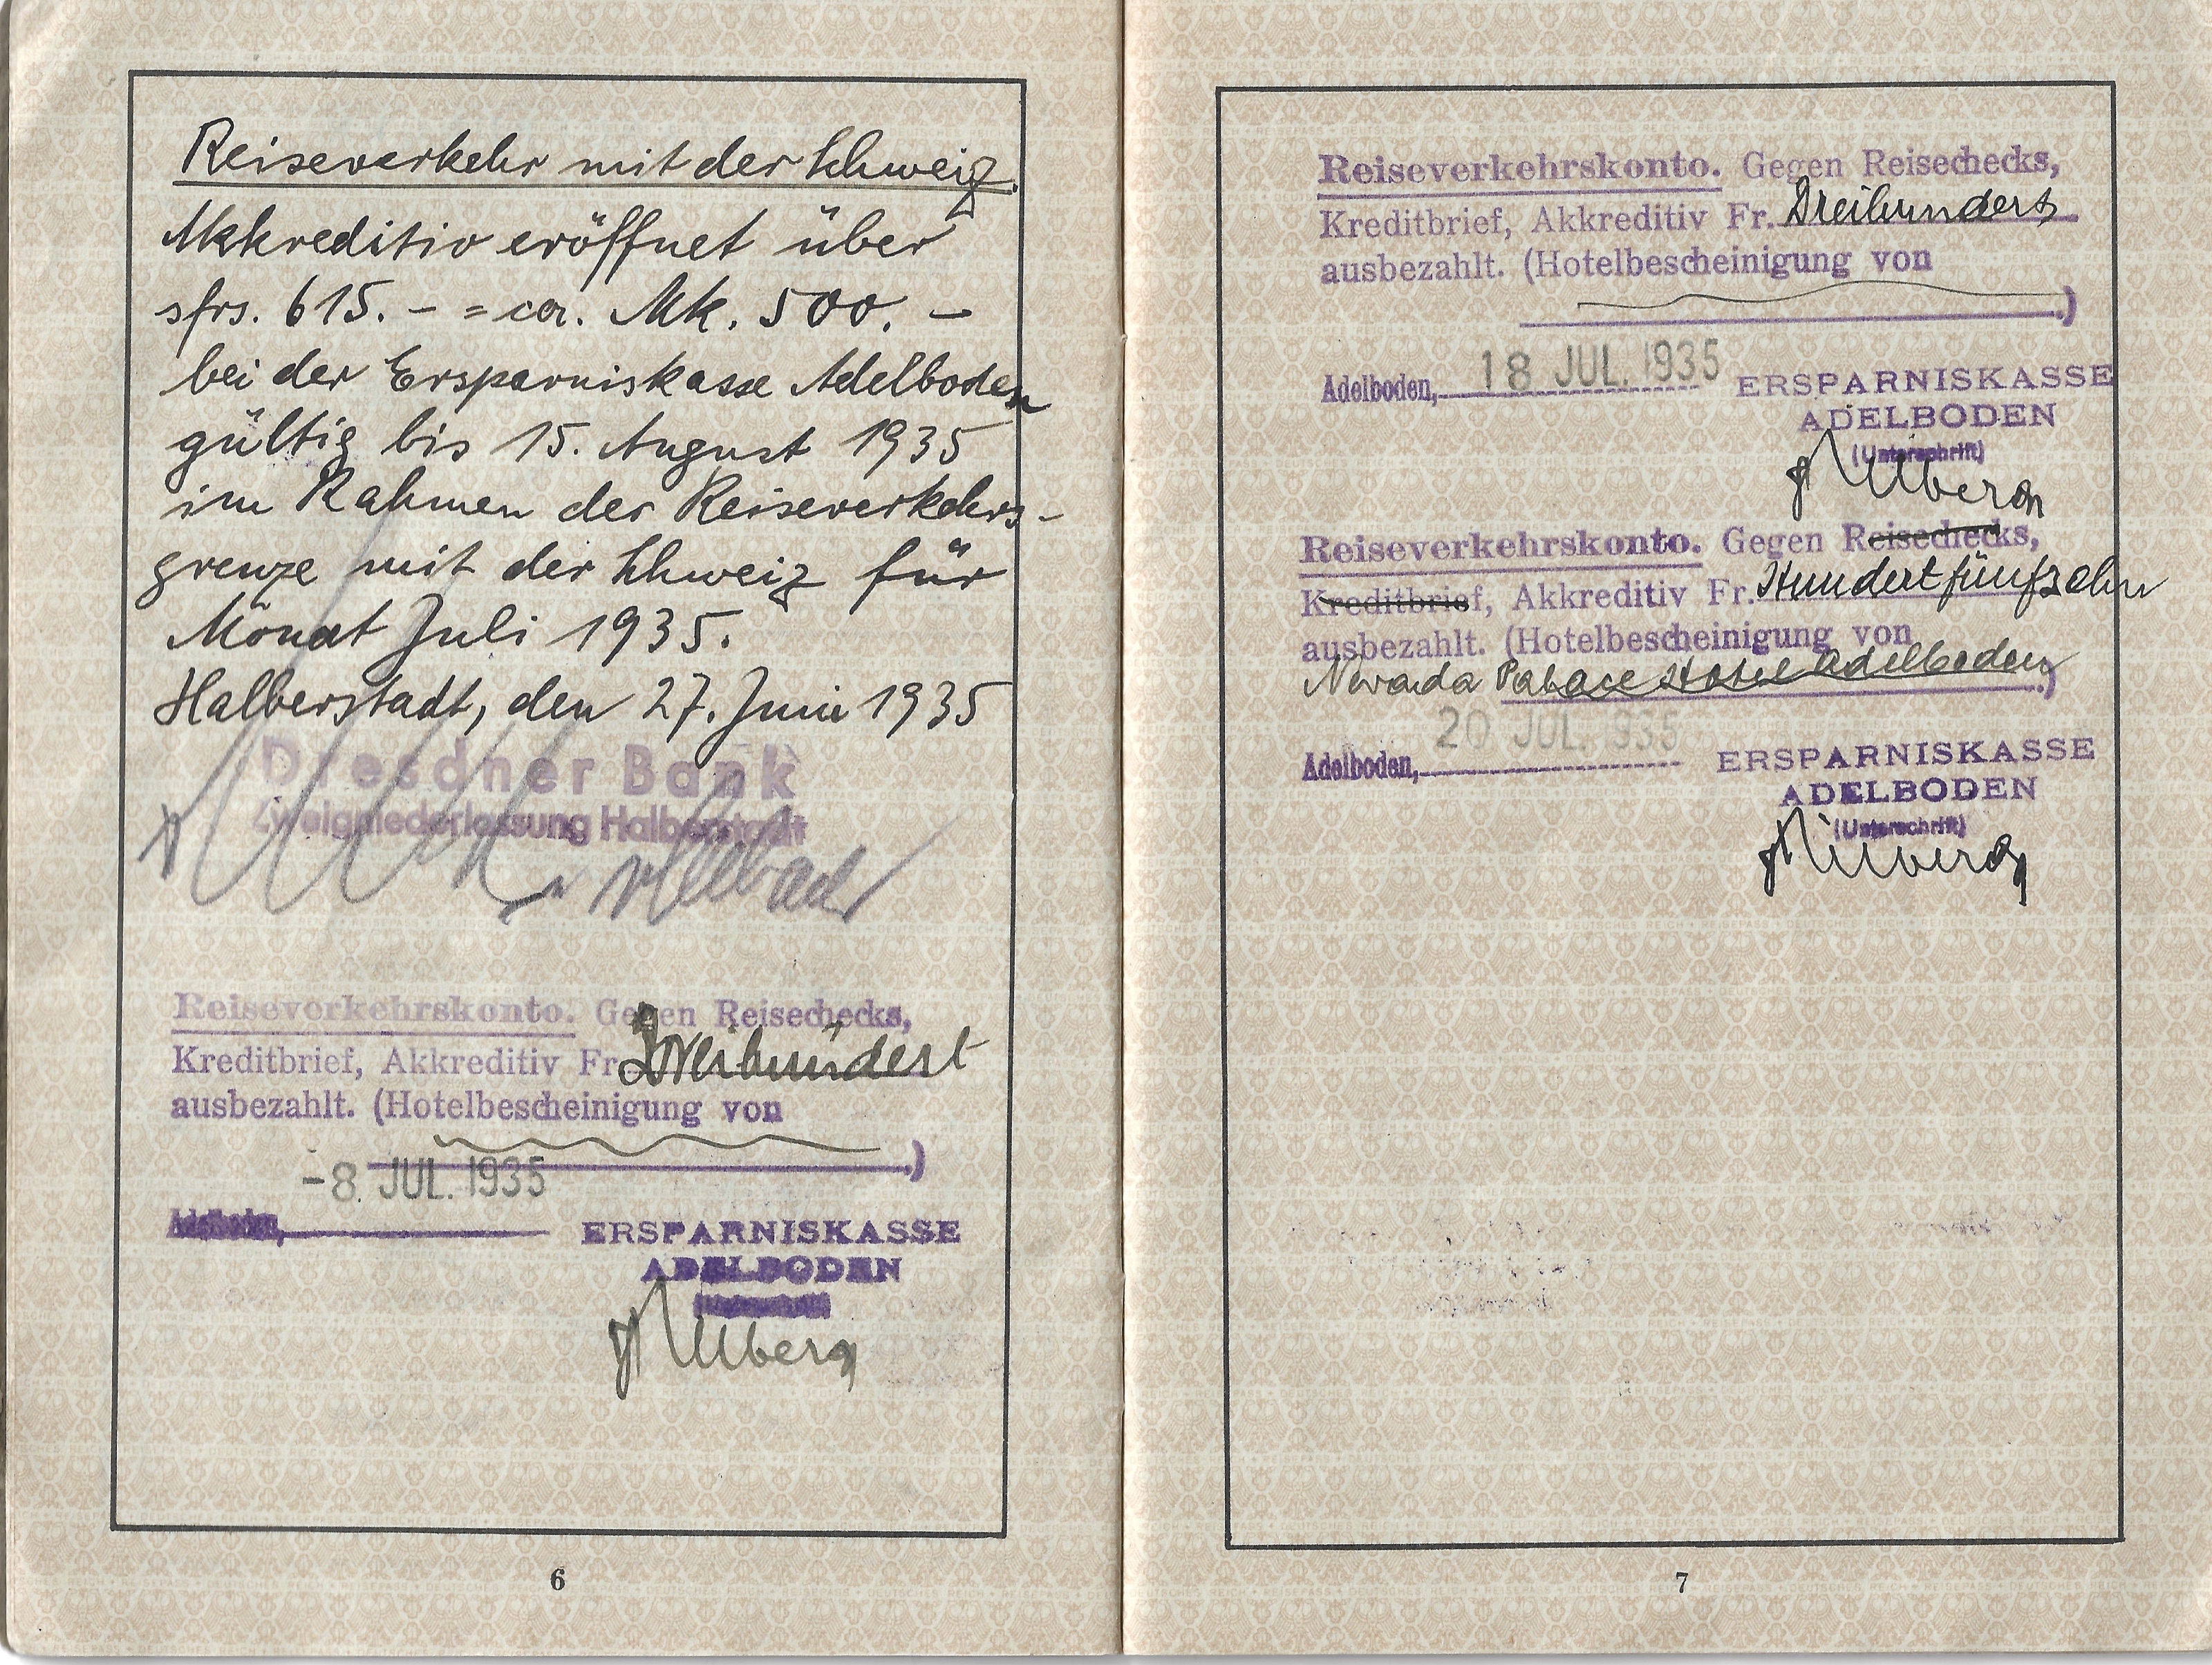 Reiseverkehr mit der Schweiz.
Akkreditiv eröffnet über
sfrs. 615.- = ca. Mk. 500.-
bei der Ersparniskasse Adelboden
gültig bis 15. August 1935
im Rahmen der Reiseverkehrs-
grenze mit der Schweiz für
Monat Juli 1935.
Halberstadt, den 27. Juni 1935
Dresdner Bank
Zweigniederlassung Halberstadt
Reiseverkehrskonto. Gegen Reisechecks,
Kreditbrief, Akkreditiv Fr. Zweihundert
ausbezahlt. (Hotelbescheinigung von
)
-8. JUL. 1935
Adelboden,
ERSPARNISKASSE
ADELBODEN
(Unterschrift)
6
Reiseverkehrskonto. Gegen Reisechecks,
Kreditbrief, Akkreditiv Fr. Dreihundert
ausbezahlt. (Hotelbescheinigung von
)
Adelboden, 18 JUL. 1935 ERSPARNISKASSE
ADELBODEN
(Unterschrift)
Reiseverkehrskonto. Gegen Reisechecks,
Kreditbrief, Akkreditiv Fr. Hundertfünfzehn
ausbezahlt. (Hotelbescheinigung von
Nevada Palace Hotel Adelboden)
20 JUL. 1935
Adelboden, ERSPARNISKASSE
ADELBODEN
(Unterschrift)
7